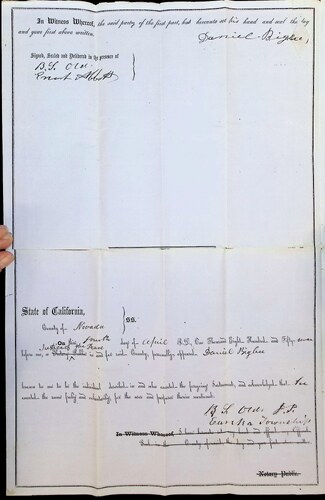 In Witness Whereof, the said party of the first part, has hereunto set his hand and seal the day
and year first above written.
Daniel Bigler
Signed, Sealed and Delivered in the presence of
B. S. Olds
Enoch Abbott
State of California,
County of Nevada } SS.
On this fourth day of April A.D., One Thousand Eight Hundred and Fifty-seven
before me, a Justice of the Peace Notary Public in and for said County, personally appeared Daniel Bigler
known to me to be the individual described in and who executed the foregoing Instrument, and acknowledged that he
executed the same freely and voluntarily, for the uses and purposes therein mentioned.
B. S. Olds J.P.
Eureka Township
In Witness Whereof,
Notary Public.